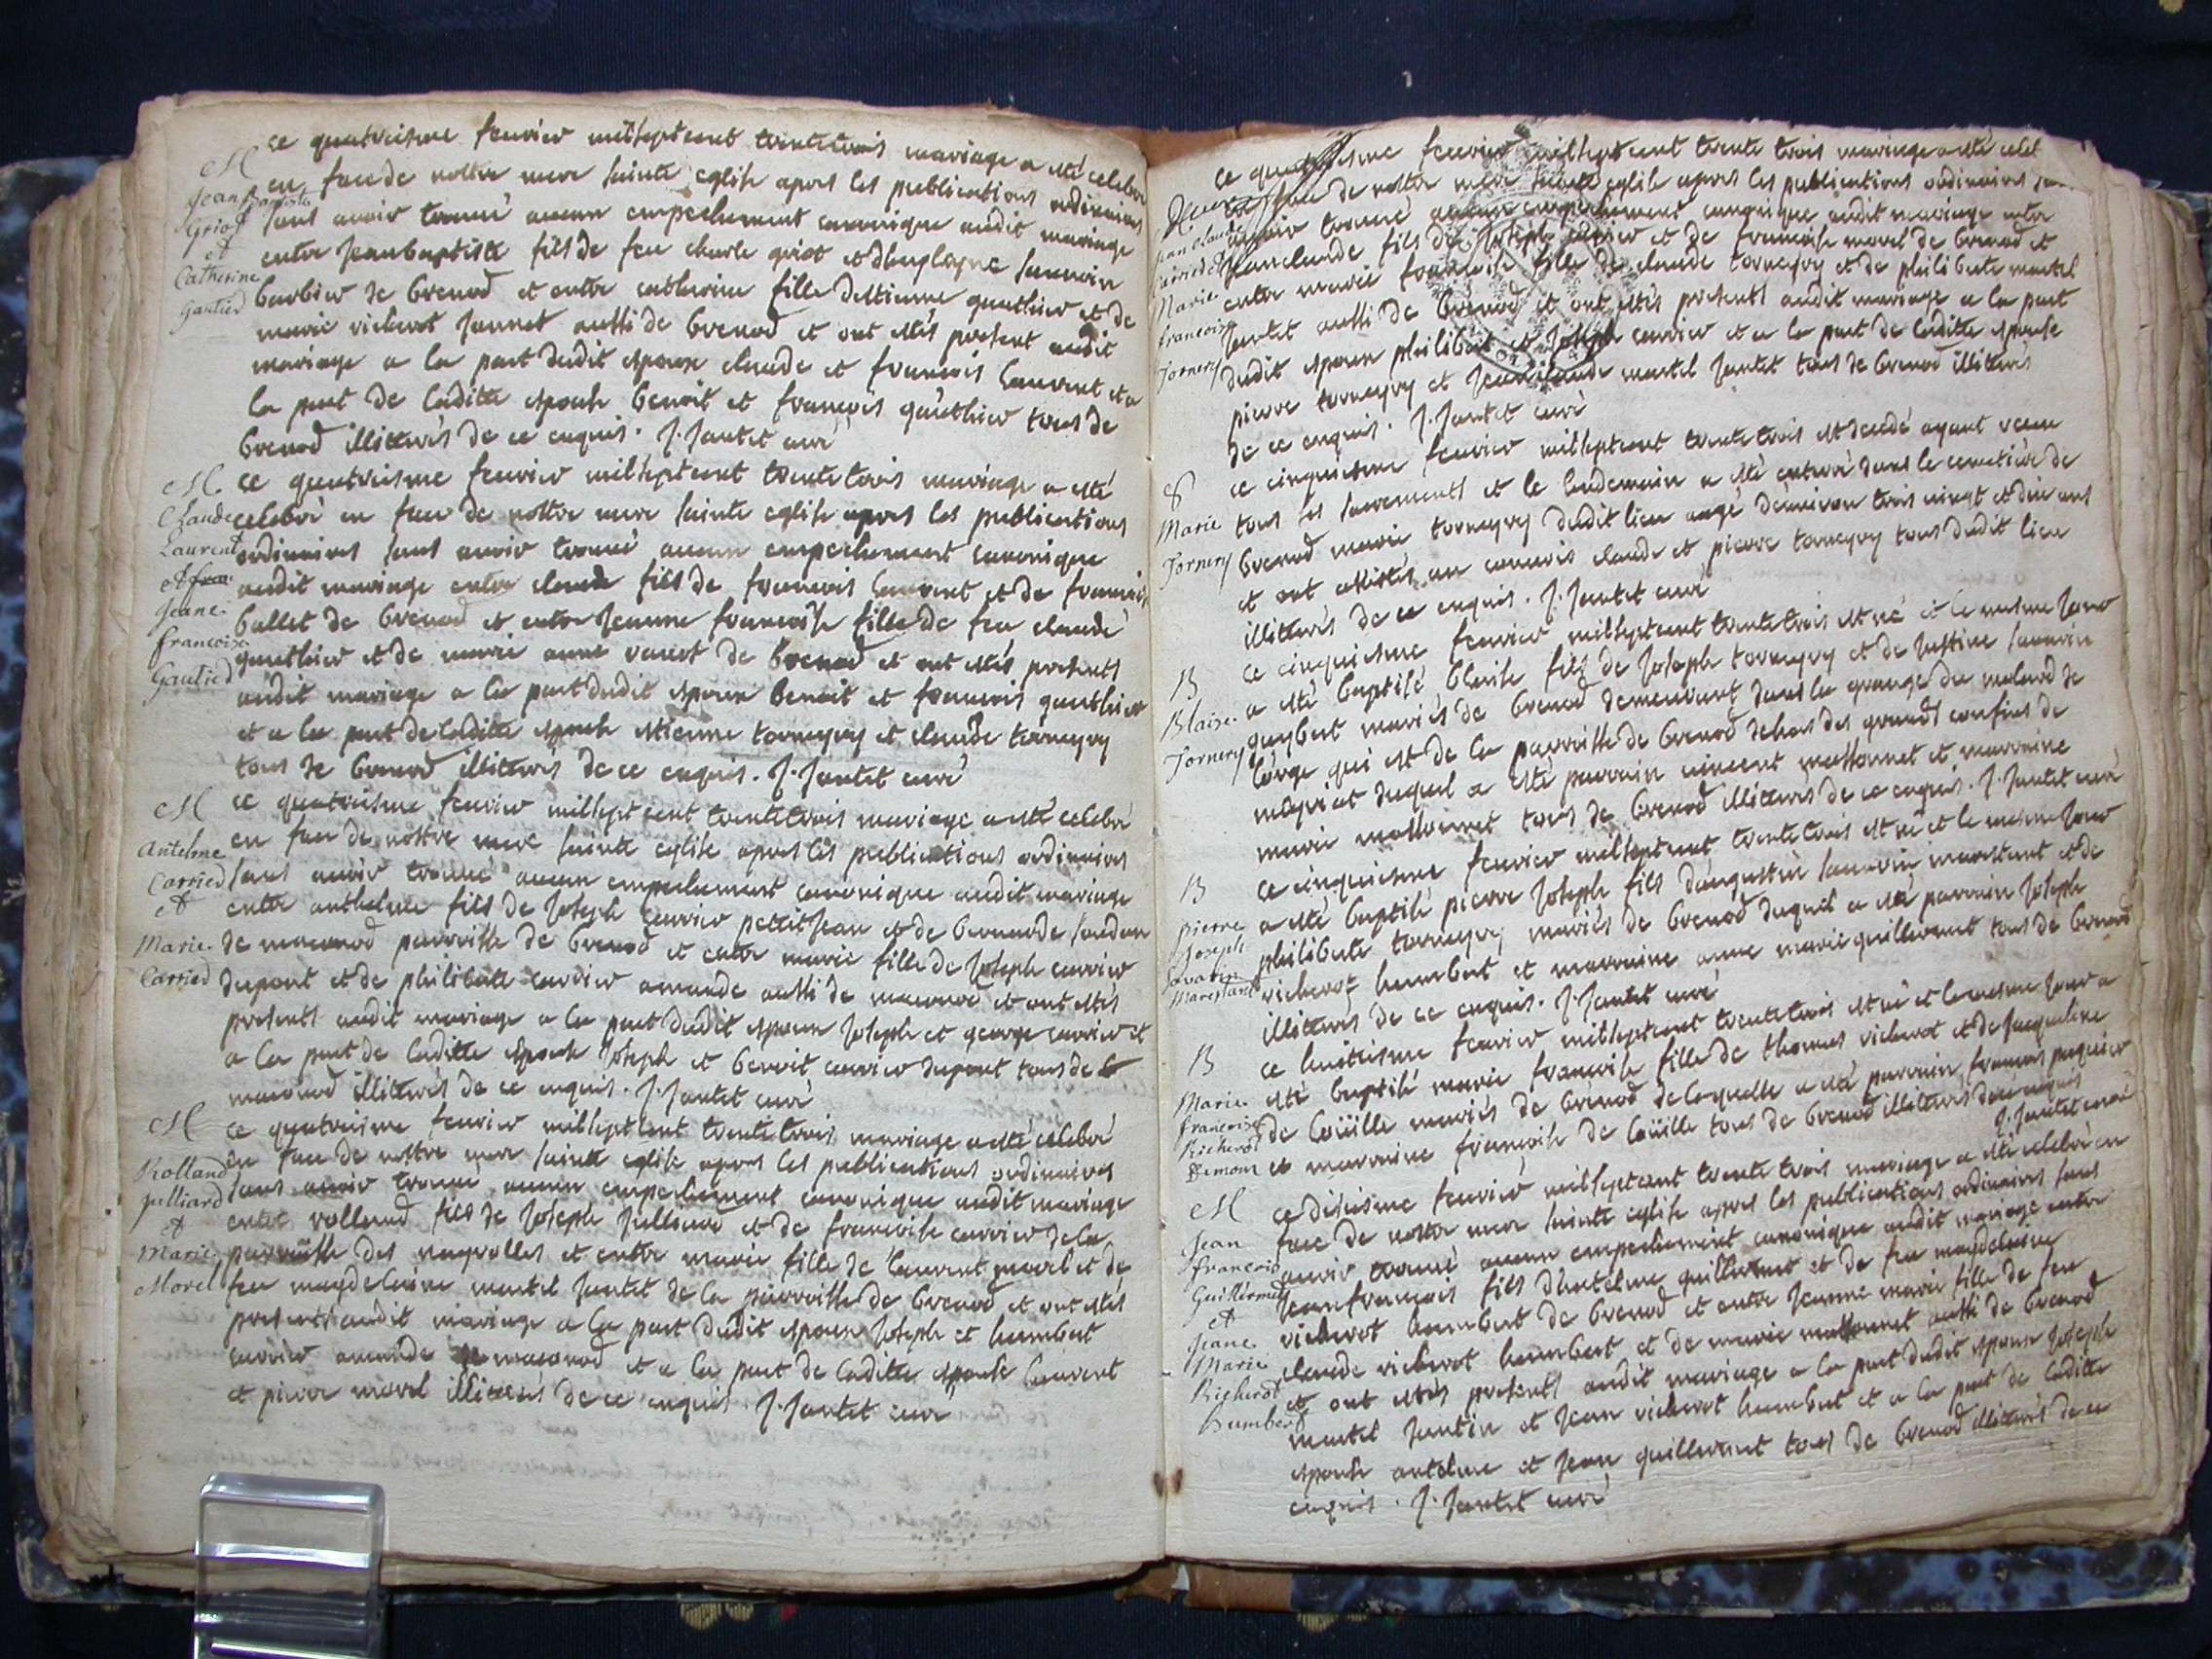 ce quatreisme feuvier milseptcent trentetrois mariage a esté celebré
en face de nostre mere sainte eglise apres les publications ordinaires
sans avoir trouvé aucun empechement canonique audit mariage
entre Jeanbaptiste fils de feu charle griot et
barbier de brenod et entre catherine fille destienne gauthier et de
marie richerot Jannet aussi de brenod et ont estés present audit
mariage a la part dudit espoux claude et francois laurent et a
la part de laditte espouse benoit et françois gauthier tous de
brenod illitterés de ce enquis. J. Jantet curé
M
Jean Baptiste
Griot
et
Catherine
Gautier
ce quatreisme feuvier milseptcent trentetrois mariage a esté
celebré en face de nostre mere sainte eglise apres les publications
ordinaires sans avoir trouvé aucun empechement canonique
audit mariage entre claude fils de francois laurent et de francoise
ballet de brenod et entre Jeanne francoise fille de feu claude
gauthier et de marie anne de brenod et ont estés presents
audit mariage a la part dudit espoux benoit et francois gauthier
et a la part de laditte espouse estienne torneyry et claude torneyry
tous de brenod illitterés de ce enquis. J. Jantet curé
M
Claude
Laurent
et fran
Jeane
francoise
Gautier
ce quatreisme feuvier milsept cent trentetrois mariage a esté celebré
en face de nostre mere sainte eglise apres les publications ordinaires
sans avoir trouvé aucun empechement canonique audit mariage
entre anthelme fils de Joseph carrier petitjean et de bernarde
de maconod parroisse de brenod et entre marie fille de Joseph carrier
dupont et de philiberte carrier amande aussi de maconod et ont estés
presents audit mariage a la part dudit espoux Joseph et george carrier et
a la part de laditte espouse Joseph et benoit carrier dupont tous de
maconod illitterés de ce enquis. J. Jantet curé
M
Antelme
Carried
et
Marie
Carried
ce quatreisme feuvier milseptcent trentetrois mariage a esté celebré
en face de nostre mere sainte eglise apres les publications ordinaires
sans avoir trouvé aucun empechement canonique audit mariage
entre rolland fils de Joseph Julliard et de francoise carrier de la
parroisse des neyrolles et entre marie fille de laurent morel et de
feu maydelaine martel Jantet de la parroisse de brenod et ont estés
presents audit mariage a la part dudit espoux Joseph et humbert
carrier amande de maconod et a la part de laditte espouse laurent
et pierre morel illitterés de ce enquis. J. Jantet curé
M
Rolland
Julliard
et
Marie
Morel
ce quatreisme feuvier milseptcent trente trois mariage a esté celeb
en face de nostre mere sainte eglise apres les publications ordinaires sans
avoir trouvé aucun empechement canonique audit mariage entre
Jeanclaude fils de Joseph carrier et de francoise morel de brenod et
entre marie francoise fille de claude torneyry et de philiberte martel
Jantet aussi de brenod et ont estés presents audit mariage a la part
dudit espoux philibert et Joseph carrier et a la part de laditte espouse
pierre torneyry et Jeanclaude martel Jantet tous de brenod illitterés
de ce enquis. J. Jantet curé
Jean Claude
Carried et
Marie
francoise
Tornery
ce cinquiesme feuvier milseptcent trentetrois est decedé ayant receu
tous ses sacrements et le lendemain a esté enterré dans le cemetiere de
brenod marie torneyry dudit lieu aagé denviron trois vingt et dix ans
et ont assistés au convois claude et pierre torneyry tous dudit lieu
illitterés de ce enquis. J. Jantet curé
Marie
Tornery
ce cinquiesme feuvier milseptcent trentetrois est né et le mesme Jour
a esté baptisé blaise fils de Joseph torneyry et de Justine savarin
guybert mariés de brenod demeurant dans la grange du molard de
lorge qui est de la parroisse de brenod dehors des grands confins de
meyriat duquel a esté parrain vincent massonnet et marraine
marie massonnet tous de brenod illitterés de ce enquis. J. Jantet curé
B
Blaise
Tornery
ce cinquiesme feuvier milseptcent trentetrois est né et le mesme Jour
a esté baptisé pierre Joseph fils daugustin savarin marestant et de
philiberte torneyry mariés de brenod duquel a esté parrain Joseph
richerot humbert et marraine anne marie guillermet tous de brenod
illitterés de ce enquis. J. Jantet curé
B
pierre
Joseph
Savarin
Marestant
ce huittiesme feuvier milseptcent trentetrois est né et le mesme Jour a
esté baptisé marie francoise fille de thomas richerot et de Jacqueline
de loüille mariés de brenod de laquelle a esté parrain francois
et marraine francoise de loüille tous de brenod illitterés de ce enquis
J. Jantet curé
B
Marie
francoise
Richerot
ce dixiesme feuvier milseptcent trente trois mariage a esté celebré en
face de nostre mere sainte eglise apres les publications ordinaires sans
avoir trouvé aucun empechement canonique audit mariage entre
Jeanfrancois fils dantelme guillermet et de feu maydelaine
richerot humbert de brenod et entre Jeanne marie fille de feu
claude richerot humbert et de marie massonnet aussi de brenod
et ont estés presents audit mariage a la part dudit espoux Joseph
martel Jantin et Jean richerot humbert et a la part de laditte
espouse antelme et Jean guillermet tous de brenod illitterés de ce
enquis. J. Jantet curé
M
Jean
francois
Guillermet
et
Jeane
Marie
Richerot
Humbert